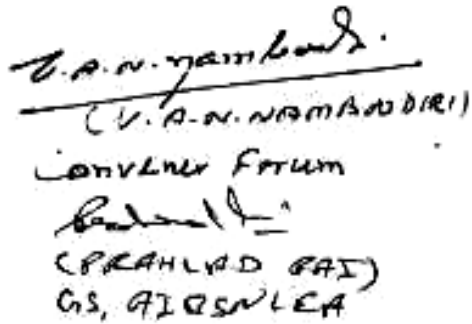 V.A.N. Namboodi.
(V.A.N. NAMBOODIRI)
Convener Forum
(PRAHLAD RAI)
GS, AIBSNLEA